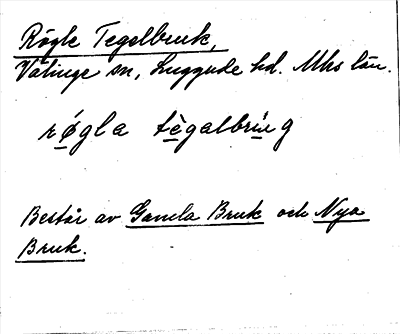 Rögle Tegelbruk,
Välinge sn, Luggude hd. Mhs län.
røgla tègalbrug
Består av Gamla Bruk och Nya
Bruk.